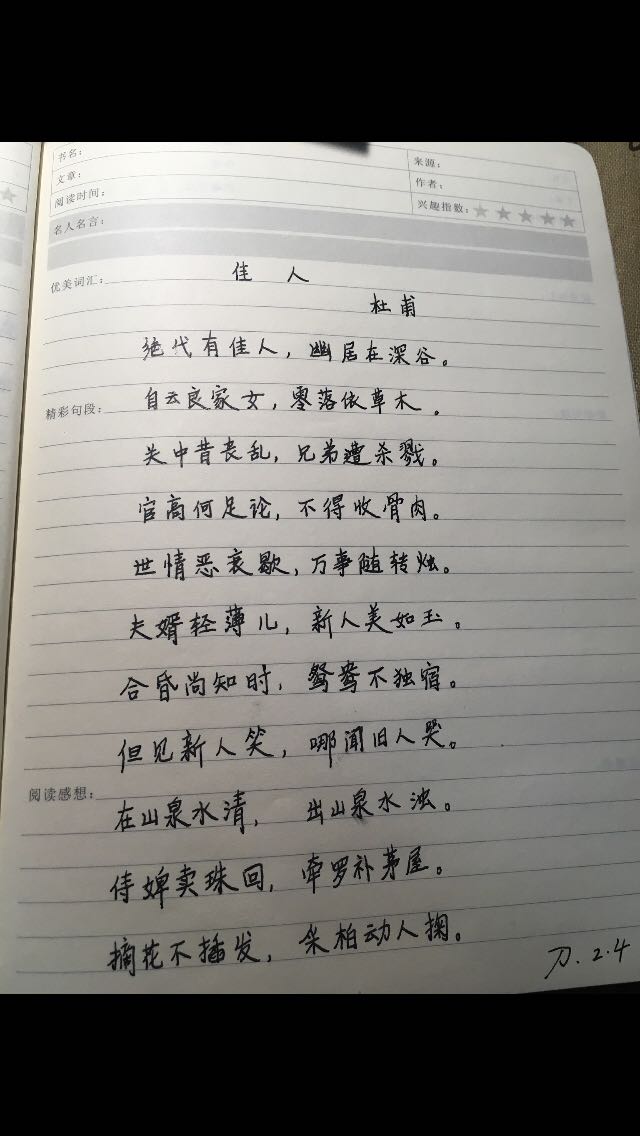 书名：
来源：
文章：
作者：
阅读时间：
兴趣指数：
名人名言：
优美词汇：
佳 人
杜甫
绝代有佳人，幽居在深谷。
精彩句段：
自云良家女，零落依草木。
关中昔丧乱，兄弟遭杀戮。
官高何足论，不得收骨肉。
世情恶衰歇，万事随转烛。
夫婿轻薄儿，新人美如玉。
合昏尚知时，鸳鸯不独宿。
但见新人笑，哪闻旧人哭。
阅读感想：
在山泉水清，出山泉水浊。
侍婢卖珠回，牵罗补茅屋。
摘花不插发，采柏动人掬。
刀.2.4